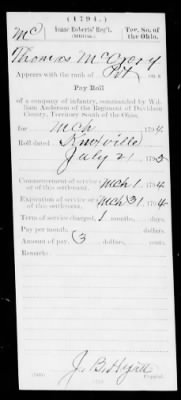 (1794.)
Mc
Isaac Roberts' Reg't.
Ter. So. of the Ohio.
Thomas McCrory
Appears with the rank of Pvt. on a
Pay Roll
of a company of infantry, commanded by William Anderson of the Regiment of Davidson
County, Territory South of the Ohio,
for Mch 1794.
Roll dated Knoxville
July 21, 1795
Commencement of service or of this settlement, Mch 1, 1794.
Expiration of service or of this settlement, Mch 31, 1794
Term of service charged, 1 months, days.
Pay per month, dollars.
Amount of pay, 3 dollars
Remarks:
Copyist.